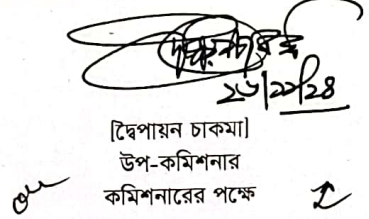 ২৬/১১/২৪
[দ্বৈপায়ন চাকমা]
উপ-কমিশনার
কমিশনারের পক্ষে